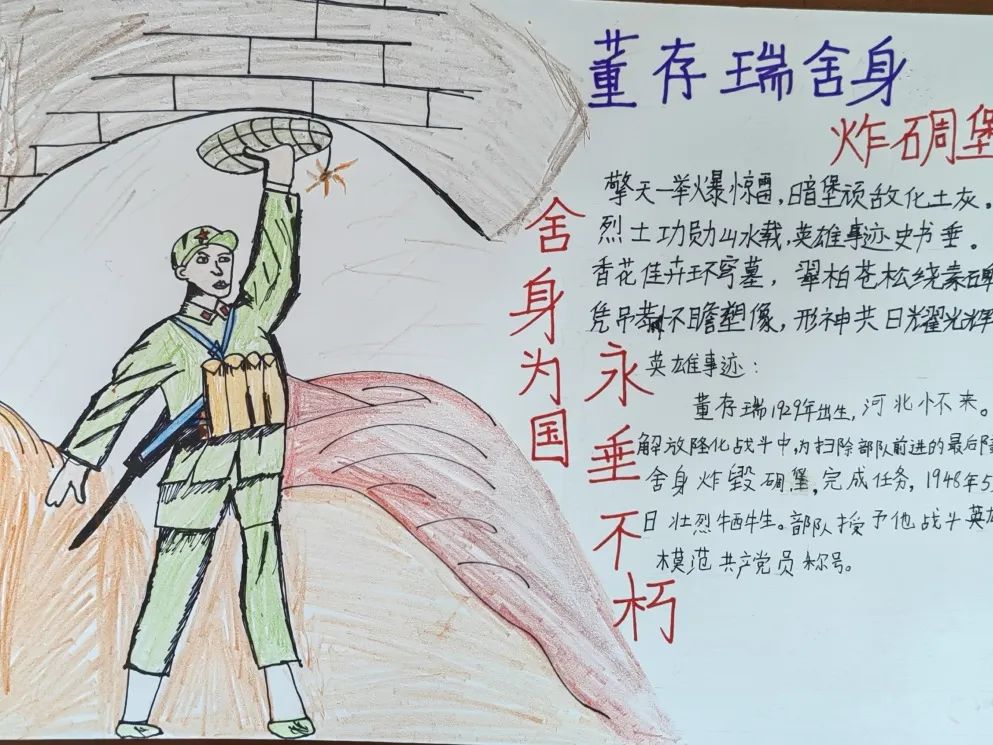 董存瑞舍身
炸碉堡
擎天一举爆惊雷,暗堡顽敌化土灰。
烈士功勋山水载,英雄事迹史书垂。
香花佳卉环穹墓,翠柏苍松绕素碑
凭吊瞻塑像,形神共日耀光辉
舍身为国
永垂不朽
英雄事迹:
董存瑞1929年出生,河北怀来。
解放隆化战斗中,为扫除部队前进的最后
舍身炸毁碉堡,完成任务,1948年5
日壮烈牺牲。部队授予他战斗英雄
模范共产党员称号。